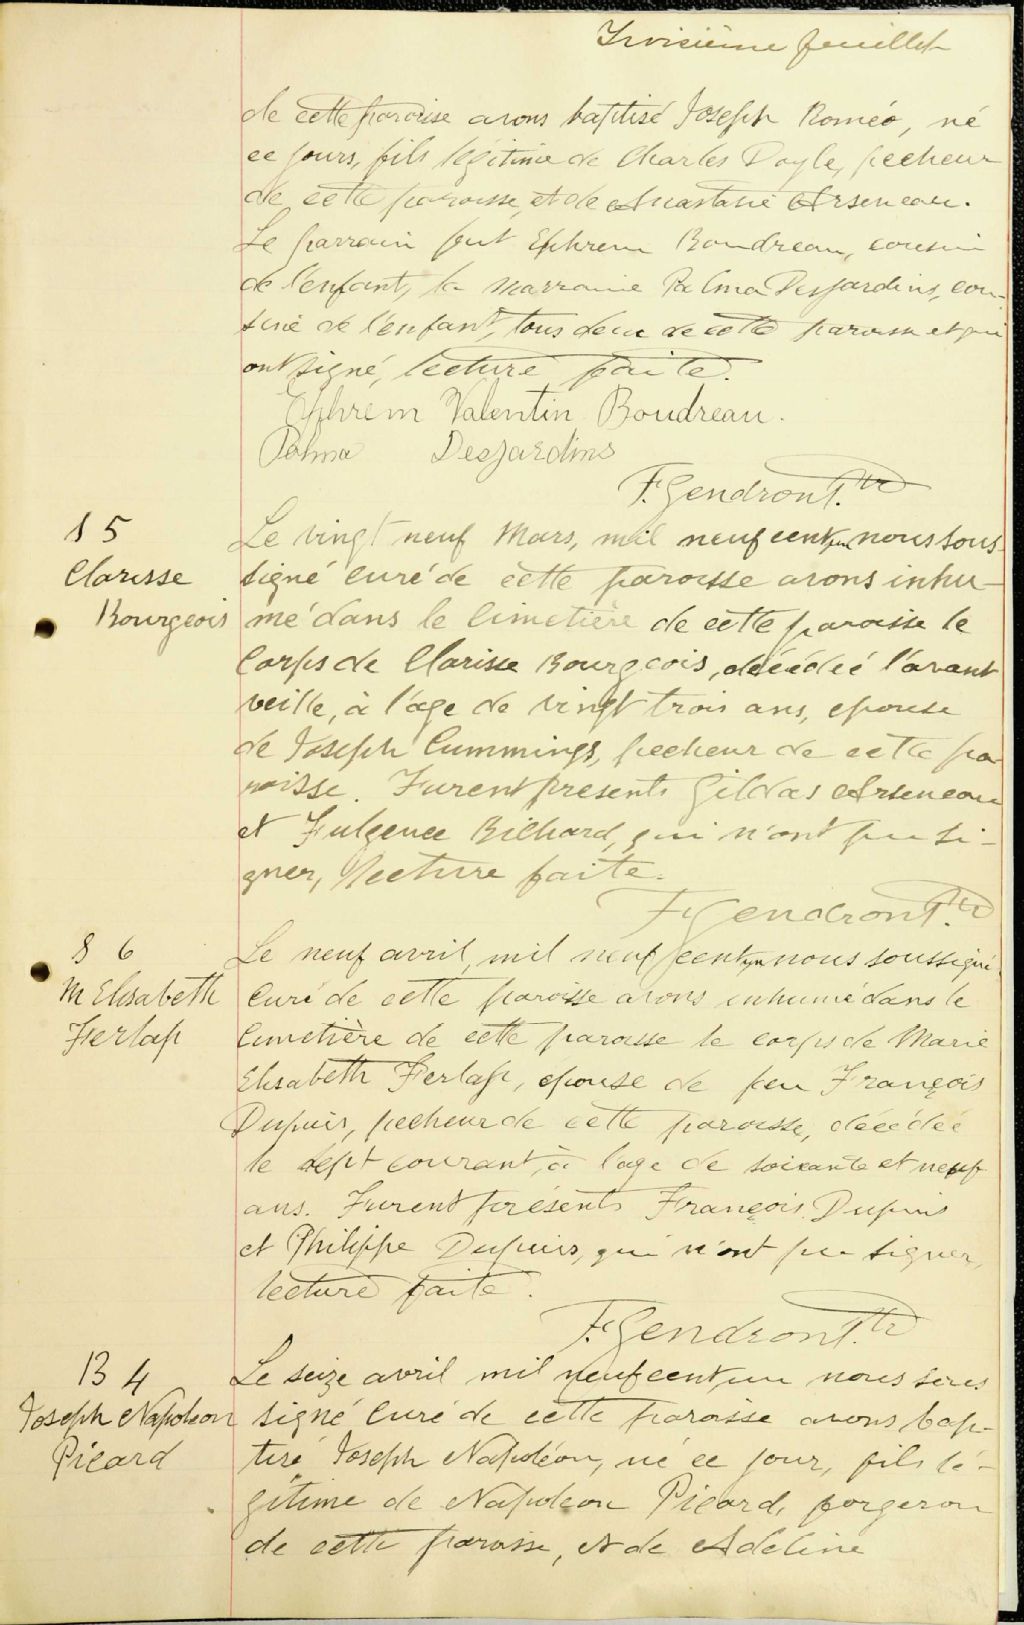 Troisième feuillet
de cette paroisse avons baptisé Joseph Roméo, né
ce jours, fils légitime de Charles Doyle, pecheur
de cette paroisse, et de Anastasie Arseneau.
Le parrain fut Ephrem Boudreau, cousin
de l'enfant, la marraine Palma Desjardins, cou-
sine de l'enfant, tous deux de cette paroisse et qui
ont signé, lecture faite.
Ephrem Valentin Boudreau.
Palma Desjardins
F. Gendron Ptre
S 5
Clarisse
Bourgeois
Le vingt neuf Mars, mil neuf cent un nous sous-
signé Curé de cette paroisse avons inhu-
mé dans le Cimetière de cette paroisse le
Corps de Clarisse Bourgeois, décédéé l'avant
veille, à l'age de vingt trois ans, epouse
de Joseph Cummings, pecheur de cette pa
roisse. Furent presents Gildas Arseneau
et Fulgence Richard, qui n'ont pu si-
gner, lecture faite.
F. Gendron Ptre
S 6
M Elisabeth
Ferlap
Le neuf avril, mil neuf cent un nous soussigné
Curé de cette paroisse avons inhumé dans le
Cimetière de cette paroisse le corps de Marie
Elisabeth Ferlap, epouse de feu François
Dupuis, pecheur de cette paroisse, décédée
le sept courant, à l'age de soixante et neuf
ans. Furent présents François Dupuis
et Philippe Dupuis, qui n'ont pu signer,
lecture faite.
F. Gendron Ptre
B 4
Joseph Napoleon
Picard
Le seize avril mil neuf cent, un nous sous
signé Curé de cette paroisse avons bap-
tisé Joseph Napoléon, né ce jour, fils lé-
gitime de Napoleon Picard, forgeron
de cette paroisse, et de Adeline